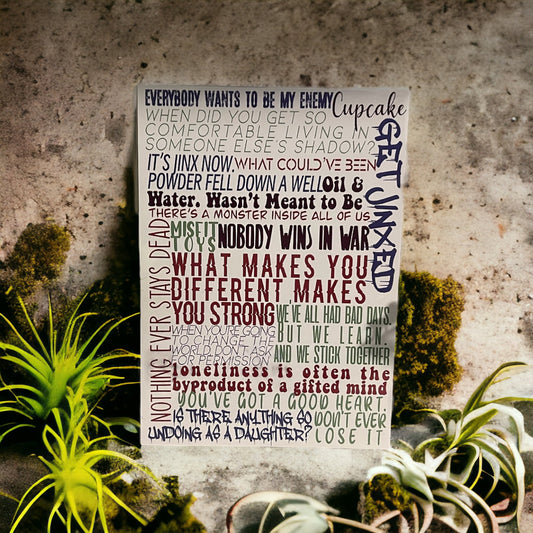 EVERYBODY WANTS TO BE MY ENEMY Cupcake
WHEN DID YOU GET SO
COMFORTABLE LIVING IN
SOMEONE ELSE'S SHADOW?
GET JINXED
IT'S JINX NOW. WHAT COULD'VE BEEN
POWDER FELL DOWN A WELL Oil &
Water. Wasn't Meant to Be
THERE'S A MONSTER INSIDE ALL OF US
NOTHING EVER STAYS DEAD
MISFIT
TOYS
NOBODY WINS IN WAR
WHAT MAKES YOU
DIFFERENT MAKES
YOU STRONG
WE'VE ALL HAD BAD DAYS.
BUT WE LEARN.
AND WE STICK TOGETHER
WHEN YOU'RE GOING
TO CHANGE THE
WORLD DON'T ASK
FOR PERMISSION.
loneliness is often the
byproduct of a gifted mind
YOU'VE GOT A GOOD HEART.
DON'T EVER
LOSE IT
IS THERE ANYTHING SO
UNDOING AS A DAUGHTER?